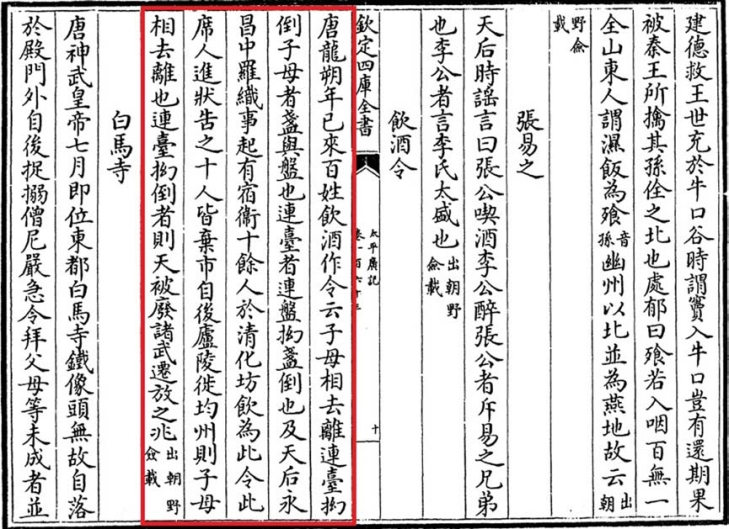 建德救王世充於牛口谷時謂竇入牛口豈有還期果
被秦王所擒其孫佺之北也處郁曰飱若入咽百無一
全山東人謂濕飯為飱音孫幽州以北並為燕地故云出朝
野僉載
張易之
天后時謡言曰張公喫酒李公醉張公者斥易之兄弟
也李公者言李氏太盛也出朝野僉載
飲酒令
欽定四庫全書
太平廣記
卷一百六十三
十
唐龍朔年已來百姓飲酒作令云子母相去離連臺拗
倒子母者盞與盤也連臺者連盤拗盞倒也及天后永
昌中羅織事起有宿衞十餘人於清化坊飲為此令此
席人進狀告之十人皆棄市自後廬陵徙均州則子母
相去離也連臺拗倒者則天被廢諸武遷放之兆出朝野僉載
白馬寺
唐神武皇帝七月即位東都白馬寺鐵像頭無故自落
於殿門外自後捉搦僧尼嚴急令拜父母等未成者並